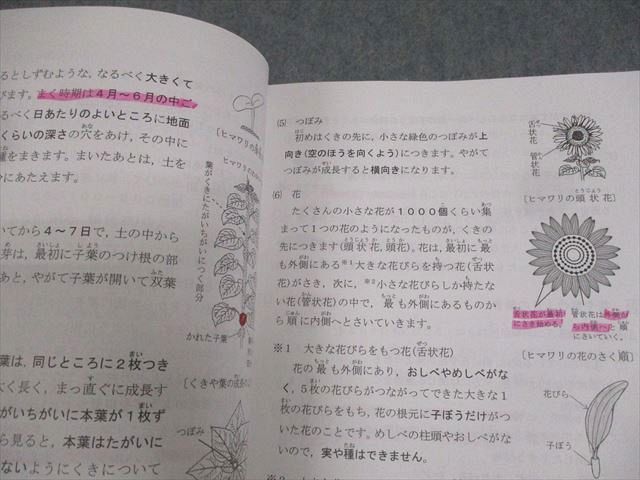 るとしずむような,なるべく大きくて
びます。まく時期は4月~6月の中ご
るべく日あたりのよいところに地面
くらいの深さの穴をあけ,その中に
種をまきます。まいたあとは,土を
分にあたえます。
いてから4~7日で,土の中から
芽は,最初に子葉のつけ根の部
あと,やがて子葉が開いて双葉
葉は,同じところに2枚つき
く長く,まっ直ぐに成長す
がいちがいに本葉が1枚ず
ら見ると,本葉はたがいに
ないようにくきについて
〔ヒマワリの
葉がくきにたがいちがいにつく部分
かれた子葉
〔くきや葉の成長
つぼみ
(5) つぼみ
初めはくきの先に,小さな緑色のつぼみが上
向き(空のほうを向くよう)につきます。やがて
つぼみが成長すると横向きになります。
(6) 花
たくさんの小さな花が1000個くらい集
まって1つの花のようになったものが,くきの
先につきます(頭状花,頭花)。花は,最初に最
も外側にある※1大きな花びらを持つ花(舌状
花)がさき,次に,※2小さな花びらしか持たな
い花(管状花)の中で,最も外側にあるものか
ら順に内側へとさいていきます。
※1 大きな花びらをもつ花(舌状花)
花の最も外側にあり,おしべやめしべがな
く,5枚の花びらがつながってできた大きな1
枚の花びらをもち,花の根元に子ぼうだけがつ
いた花のことです。めしべの柱頭やおしべがな
いので,実や種はできません。
舌状花
管状花
〔ヒマワリの頭状花〕
舌状花が最初にさき始める。
管状花は外側から内側へと順にさいていく。
〔ヒマワリの花のさく順〕
花びら
子ぼう